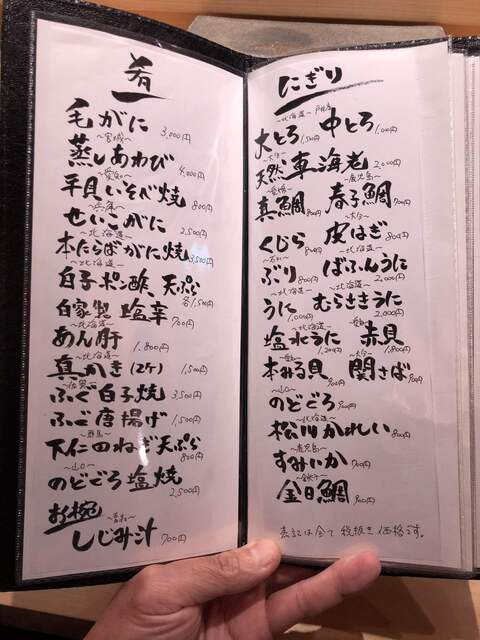 肴
毛がに 3,000円
～宮城～
蒸しあわび 4,000円
～愛知～
平貝いそべ焼 800円
～兵庫～
せいこがに 2,500円
～北海道～
本たらばがに焼 3,500円
～北海道～
白子ポン酢、天ぷら 各1,500円
自家製 塩辛 700円
～北海道～
あん肝 1,800円
～北海道～
真かき(2ケ) 1,800円
～佐賀～
ふぐ白子焼 3,500円
ふぐ唐揚げ 1,500円
～群馬～
下仁田ねぎ天ぷら 800円
～山口～
のどぐろ塩焼 2,500円
お椀
しじみ汁 700円
にぎり
～北海道～ 戸井産
大とろ 1,500円 中とろ 1,000円
～大分～
天然車海老 2,000円
～愛媛～ ～鹿児島～
真鯛 800円 春子鯛 700円
～大分～
くじら 800円 皮はぎ 800円
～石川～ ～北海道～
ぶり 800円 ばふんうに 2,000円
～北海道～ ～北海道～
うに 1,000円 むらさきうに 2,000円
～北海道～ ～愛知～
塩水うに 1,200円 赤貝 1,800円
～愛知～ ～大分～
本みる貝 900円 関さば 900円
～山口～
のどぐろ 900円
～北海道～
松川かれい 800円
～鹿児島～
すみいか 700円
～銚子～
金目鯛 900円
表記は全て税抜き価格です。